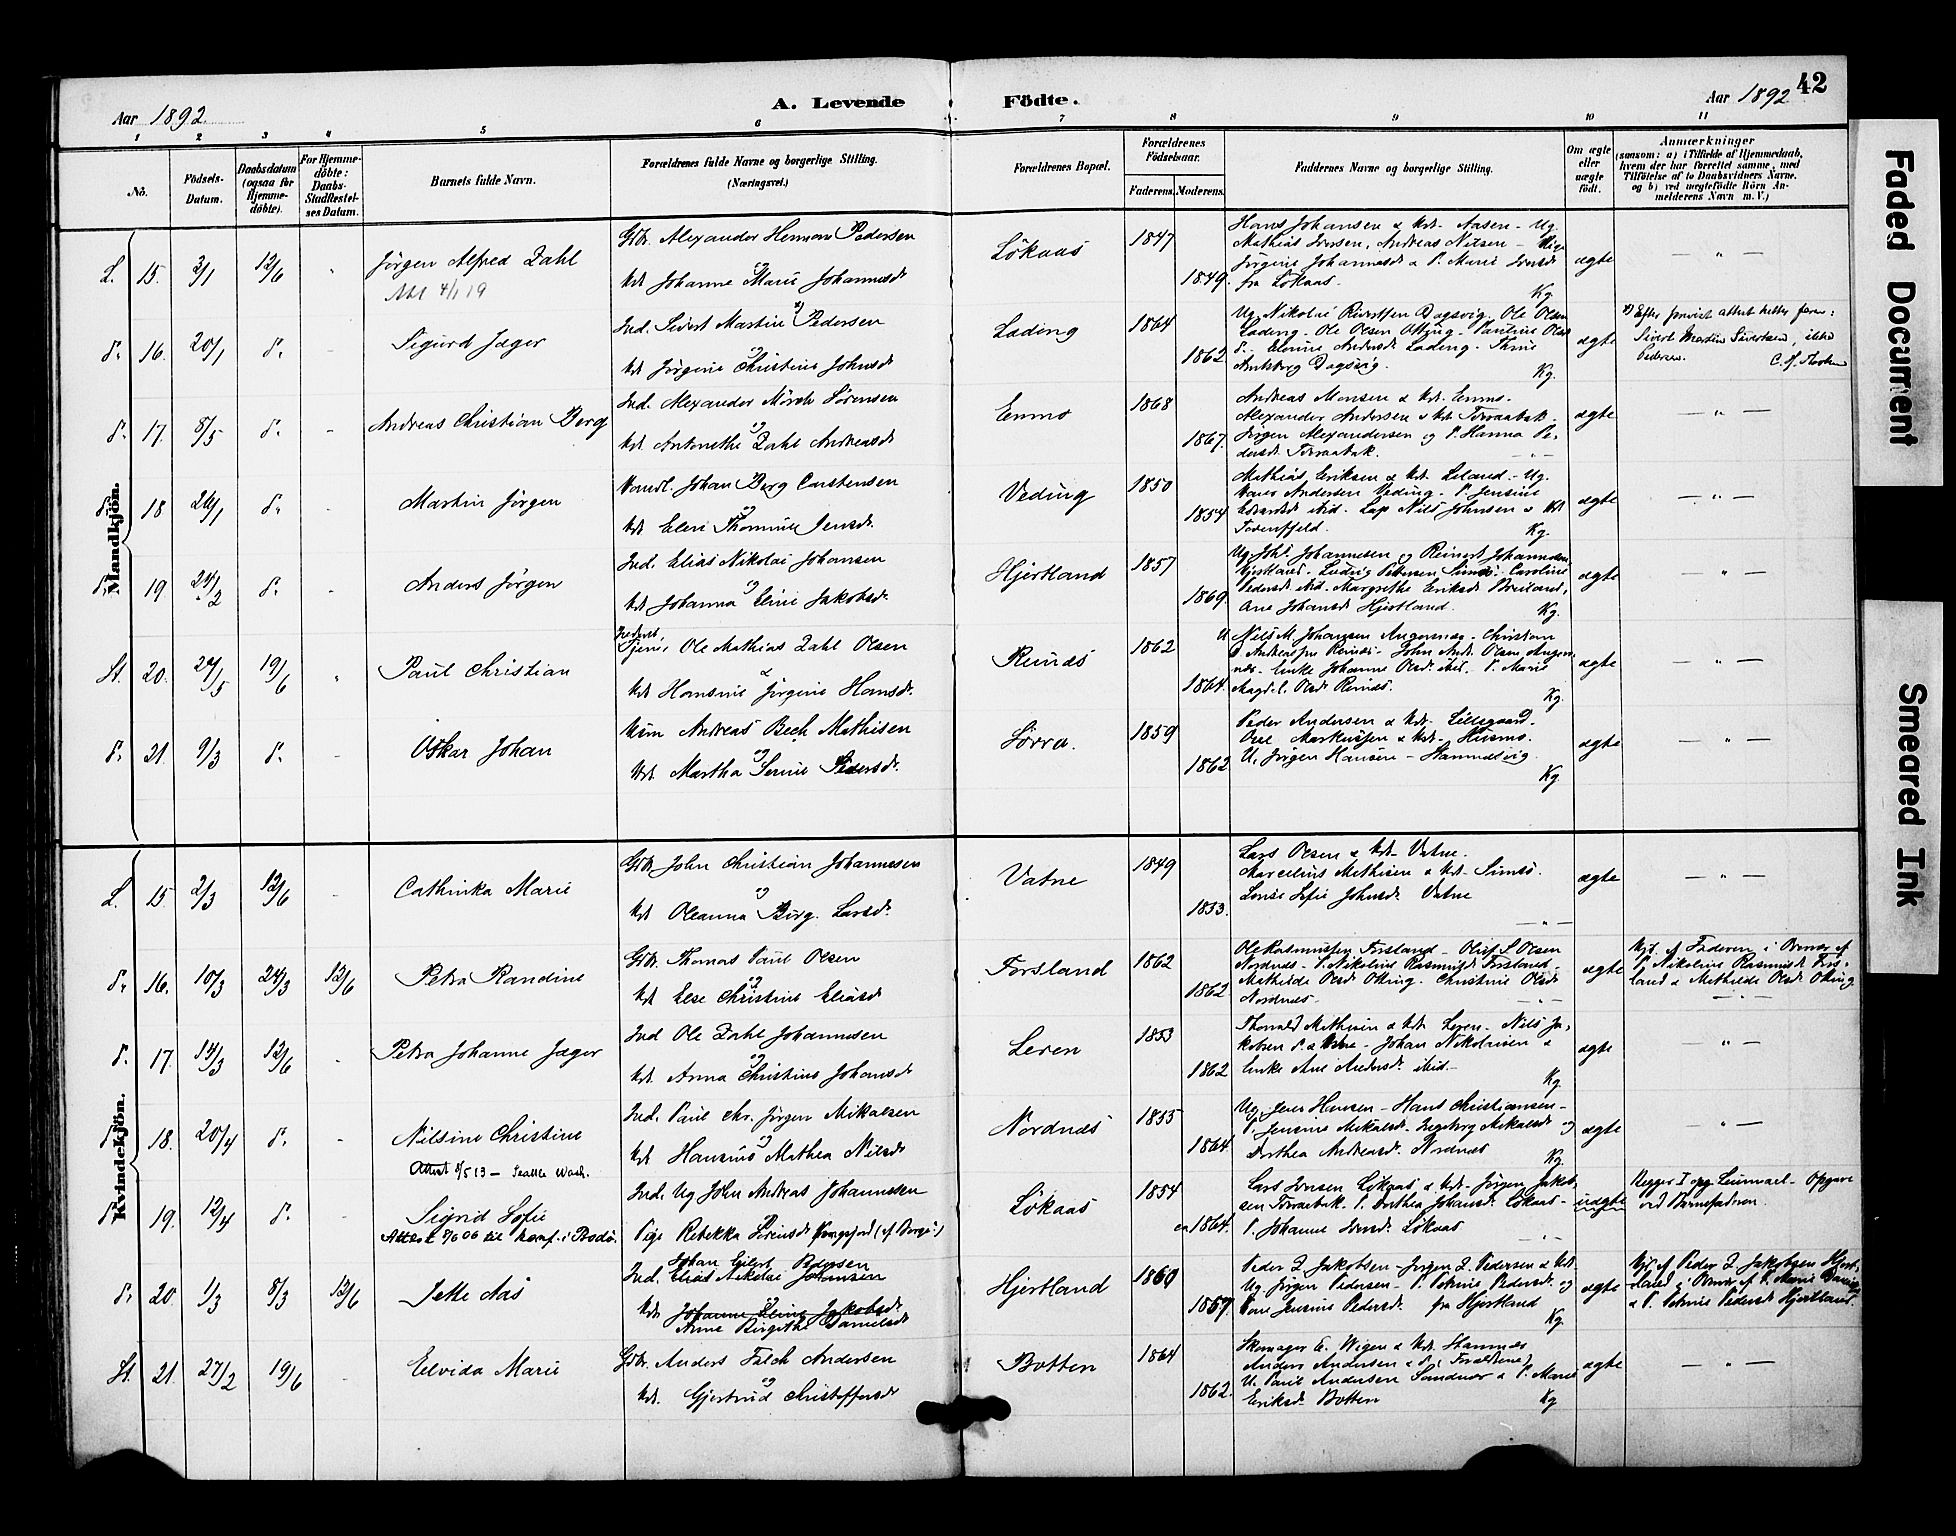 42
Aar 1892.
A. Levende Födte.
Aar 1892
1 2 3 4 5 6 7 8 9 10 11
No.
Födsels-Datum.
Daabsdatum (ogsaa for Hjemme-döbte).
For Hjemme-döbte: Daabs-Stadfæstel-ses Datum.
Barnets fulde Navn.
Forældrenes fulde Navne og borgerlige Stilling. (Næringsvei.)
Forældrenes Bopæl.
Forældrenes Födselsaar.
Faderens. Moderens.
Faddernes Navne og borgerlige Stilling.
Om ægte eller uægte födt.
Anmærkninger
(saasom: a) i Tilfælde af Hjemmedaab, hvem der har forrettet samme, med Tilföielse af to Daabsvidners Navne. og b) ved uægtefödte Börn An-melderens Navn m. V.)
Mandkjön.
L. 15. 3/1 12/6
Jörgen Alfred Zahl
Gbr. Alexander Herman Pedersen
og
kst Johanne Marie Johannesdr
Lökaas 1847 1849.
Hans Johansen & kst. Aasen - Ug.
Mathias Iversen, Andreas
Jörgine Johannesdr & P. Marie Iversdr
fra Lökaas.
Kg.
ægte — " —
d. 16. 20/1 d.
Sigurd Jæger
Ind. Sivert Martin x) Pedersen
og
kst Jörgine Christine Johnsdr
Lading 1864 1862
Ug. Nikolai Dagsvig. Ole Olsen
Lading. Ole Olsen Otting. Pauline Olsdr
Andersdr Lading.
Dagsvig.
Kg.
ægte
x) Efter attest heder faren:
Sivert Martin Sivertsen, ikke
Pedersen.
d. 17. 8/5 d. -
Andreas Christian Berg
Ind. Alexander Mörch Sörensen
og
kst Antonethe Zahl Andreasdr
Enmo 1868 1867.
Andreas Monsen & kst. Enmo.
Alexander Andersen & kst. Forraabak.
Jörgen Alexandersen og P. Hanna Pe-
dersdr Forraabak.
— " —
ægte — " —
d. 18 24/1 d. -
Martin Jörgen
Johan Berg Carstensen
og
kst Elen Thomine Jensdr.
Veding 1850 1854
Mathias Eriksen & kst. Leland - Ug.
Andersen Veding. P. Jensine
ibid. Lap Nils Johnsen & kst
Kg.
ægte — " —
d. 19 24/2 d. -
Anders Jörgen
Ind. Elias Nikolai Johansen
og
kst Johanna Eline Jakobsdr
Hjertland 1857 1869.
Ug. Joh. Johannesen og Reinert Johannesen
Hjertland - Ludvig Petersen - Caroline
Pedersdr ibid. Margrethe Eriksdr Breiland,
Ane Johansdr Hjertland.
Kg.
ægte " —
St. 20. 24/5 19/6
Paul Christian
Tjener, Ole Mathias Zahl Olsen
&
kst Hansine Jörgine Hansdr.
Reinæs 1862 1864.
U. Nils M. Johansen Angersnæs - Christian
Andreassen Reinæs - John Andr. Olsen Angers-
næs - Enke Johanne Olsdr ibd. - P. Marie
Magd. E. Olsdr Reinæs.
Kg.
ægte — " —
d. 21. 9/3 d. -
Oskar Johan
Andreas Bech Mathisen
og
kst. Martha Sernie Pedersdr.
Sörra. 1859 1862
Peder Andersen & kst.
Markussen & kst. Husmo.
U. Jörgen Hansen - Hamnesvig.
Kg.
ægte — " —
Kvindekjön.
L. 15 2/3 12/6 -
Cathinka Marie
Gbr. John Christian Johannesen
og
kst Oleanna Berg Larsdr.
Vatne 1849 1853.
Lars Olsen & kst. Vatne.
Marcelius Mathisen & kst.
Lovise Sofie Johnsdr Vatne
— " —
ægte — " —
d. 16. 10/3 24/3 12/6
Petra Randine
Gbr. Thomas Paul Olsen
og
kst Else Christine Eliasdr
Forsland 1862 1862
Ole Rasmussen Forsland - Oluf S. Olsen
Nordnæs - P. Nikoline Rasmusdr Forsland -
Mathilde Olsdr Otting. Christine Olsdr
Nordnæs -
— " —
ægte
Hjd. af Faderen i Nærvær af
P. Nikoline Rasmusdr Fors-
land & Mathilde Olsdr Otting
d. 17. 14/3 12/6 -
Petra Johanne Jæger
Ind Ole Zahl Johannesen
og
kst. Anna Christine Johansdr
Leren 1853 1862
Thorvald Mathisen & kst. Leren - Nils Ja-
kobsen - Johan Nikolaisen &
Enke Ane Andersdr ibid. -
Kg.
ægte " —
d. 18. 20/4 d. -
Nilsine Christine
Attest 8/5 13 - Seattle Wash.
Ind. Paul Chr. Jörgen Mikalsen
og
kst Hansine Mathea Nilsdr
Nordnæs 1855 1864.
Ug. Jens Hansen - Hans Christiansen -
P. Jensine Mikalsdr. Ingeborg Mikalsdr og
Dorthea Andreasdr Nordnæs
Kg.
ægte — " —
d. 19. 12/4 d. -
Sigrid Sofie
Attest 7/6 06 til konf. i Bodö.
Ind. Ug John Andreas Johannesen
og
Pige Rebekka Sörensdr
Lökaas 1854 1864.
Lars Iversen Lökaas & kst - Jörgen Jakob-
sen Forraabak. P. Dorthea Johansdr Lökaas -
P. Johanne Iversdr Lökaas
— " —
uægte
Begges I opg. Leiermaal - Opgave
ved Barnefaderen.
d. 20. 1/3 8/3 12/6
Jette Aas
Johan Eilert Pedersen
Ind. Elias Nikolai Johansen
og
kst. Johanne Eline Jakobsdr
Anne Birgithe Danielsdr
Hjertland 1860 1857.
Peder Z. Jakobsen - Jörgen Z. Pedersen & kst.
Ug. Jörgen Pedersen - P. Petrine Pedersdr og
Jensine Pedersdr fra Hjertland
Kg.
ægte
Hjd. af Peder Z. Jakobsen Hjert-
land i Nærvær af P. Marie
& P. Petrine Pedersdr Hjertland.
St. 21. 27/2 19/6 -
Elvida Marie
Gbr. Anders Falch Andersen
og
kst. Gjertrud Christoffersdr
Botten 1864 1862.
Skomager E. Wigen & kst. Hamnæs
Anders Andersen & (Forældrene)
U. Paul Andersen Sandnæs & P. Marie
Eriksdr Botten
Kg
ægte — " —
Faded Document
Smeared Ink